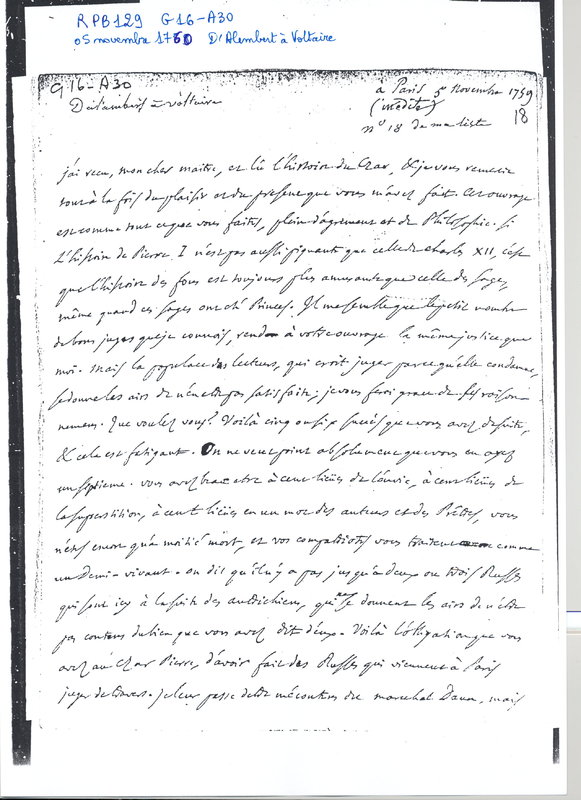 RPB129 G16-A30
05 novembre 1760 D'Alembert à Voltaire
G16-A30
Dalembert à voltaire
à Paris 5e Novembre 1759
(inédite)
18
n° 18 de ma liste
j'ai recu, mon cher maitre, et lû l'histoire du Czar, & je vous remercie
tout à la fois du plaisir et du present que vous m'avez fait. Cet ouvrage
est comme tout ce que vous faites, plein d'agrement et de Philosophie. Si
l'histoire de Pierre I n'est pas aussi piquante que celle de Charles XII, c'est
que l'histoire des fous est toujours plus amusante que celle des sages,
même quand ces sages ont été Princes. Il me semble que le petit nombre
de bons juges que je connois, rendent à votre ouvrage la même justice que
moi. Mais la populace des lecteurs, qui croit juger parce qu'elle condamne,
se donne les airs de n'être pas satisfaite; je vous ferai grace de ses raison-
nemens. Que voulez vous? Voilà cinq ou six succès que vous avez de suite,
& cela est fatigant. On ne veut point absolument que vous en ayez
un septieme. vous avez beau etre à cent lieües de l'envie, à cent lieües de
la superstition, à cent lieües en un mot des auteurs et des Prêtres, vous
n'etes encor qu'à moitié mort, et vos compatriotes vous traitent comme
un demi-vivant. on dit qu'il n'y a pas jusqu'à deux ou trois Russes
qui sont icy à la suite des autrichiens, qui ne se donnent les airs de n'être
pas contens du bien que vous avez dit d'eux. Voilà l'obligation que vous
avez au Czar Pierre, d'avoir fait des Russes qui viennent à Paris
juger de travers. je leur passe d'etre mécontens du marechal Daun, mais